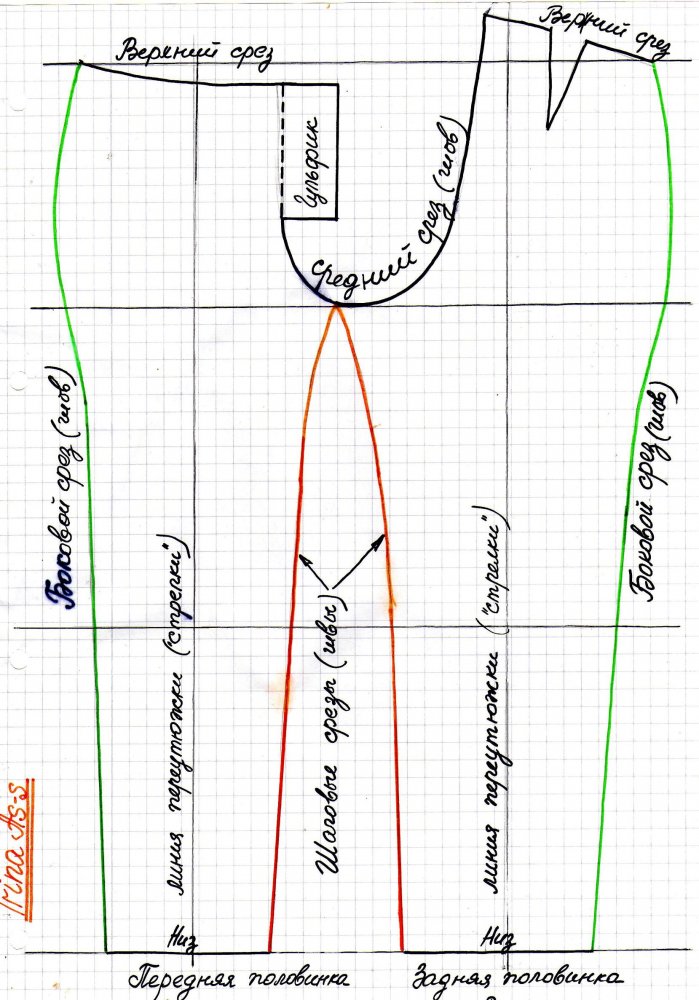 Верхний срез
Верхний срез
Гульфик
Средний срез (шов)
Боковой срез (шов)
Боковой срез (шов)
линия переутюжки ("стрелки")
Шаговые срезы (швы)
линия переутюжки ("стрелки")
Irina AS-S
Низ
Низ
Передняя половинка
Задняя половинка